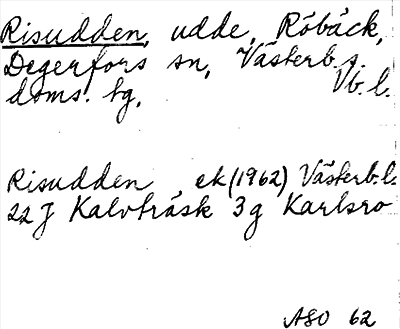 Risudden, udde, Röbäck,
Degerfors sn, Västerb. s.
doms. tg, Vb. l.
Risudden ek (1962) Västerb.l.
22 J Kalvträsk 3 g Karlsro
ASO 62